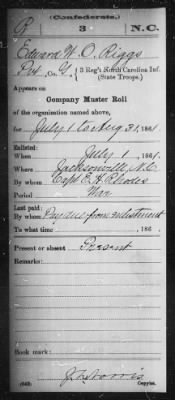 (Confederate.)
R 3 N.C.
Edward W. O. Riggs
Pvt, Co. G, 3 Reg't North Carolina Inf.
(State Troops.)
Appears on
Company Muster Roll
of the organization named above,
for July 1 to Aug 31, 1861.
Enlisted:
When July 1, 1861.
Where Jacksonville, N.C.
By whom Capt E. H. Rhodes
Period War
Last paid:
By whom Pay due from enlistment
To what time , 186 .
Present or absent Present
Remarks:
Book mark:
(642) Copyist.